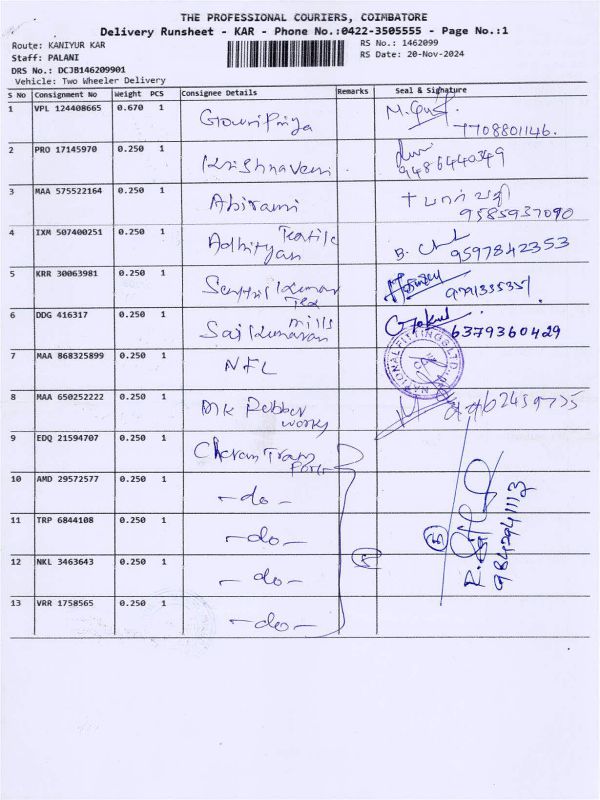 THE PROFESSIONAL COURIERS, COIMBATORE
Delivery Runsheet - KAR - Phone No.:0422-3505555 - Page No.:1
Route: KANIYUR KAR
RS No.: 1462099
Staff: PALANI
RS Date: 20-Nov-2024
DRS No.: DCJB146209901
Vehicle: Two Wheeler Delivery
S No Consignment No Weight PCS Consignee Details Remarks Seal & Signature
1 VPL 124408665 0.670 1 Gouripriya 7708801146.
2 PRO 17145970 0.250 1 Krishnaveni 9486440349
3 MAA 575522164 0.250 1 Abirami 9585937090
4 IXM 507400251 0.250 1 Adhityan Textile 9597842353
5 KRR 30063981 0.250 1 Senthil Kumar Tex
6 DDG 416317 0.250 1 Sai Kumaran mills Gokul 6379360429
7 MAA 868325899 0.250 1 NFL
8 MAA 650252222 0.250 1 MK Rubber works
9 EDQ 21594707 0.250 1 Cheran Trans Port
10 AMD 29572577 0.250 1 -do-
11 TRP 6844108 0.250 1 -do-
12 NKL 3463643 0.250 1 -do-
13 VRR 1758565 0.250 1 -do-
5